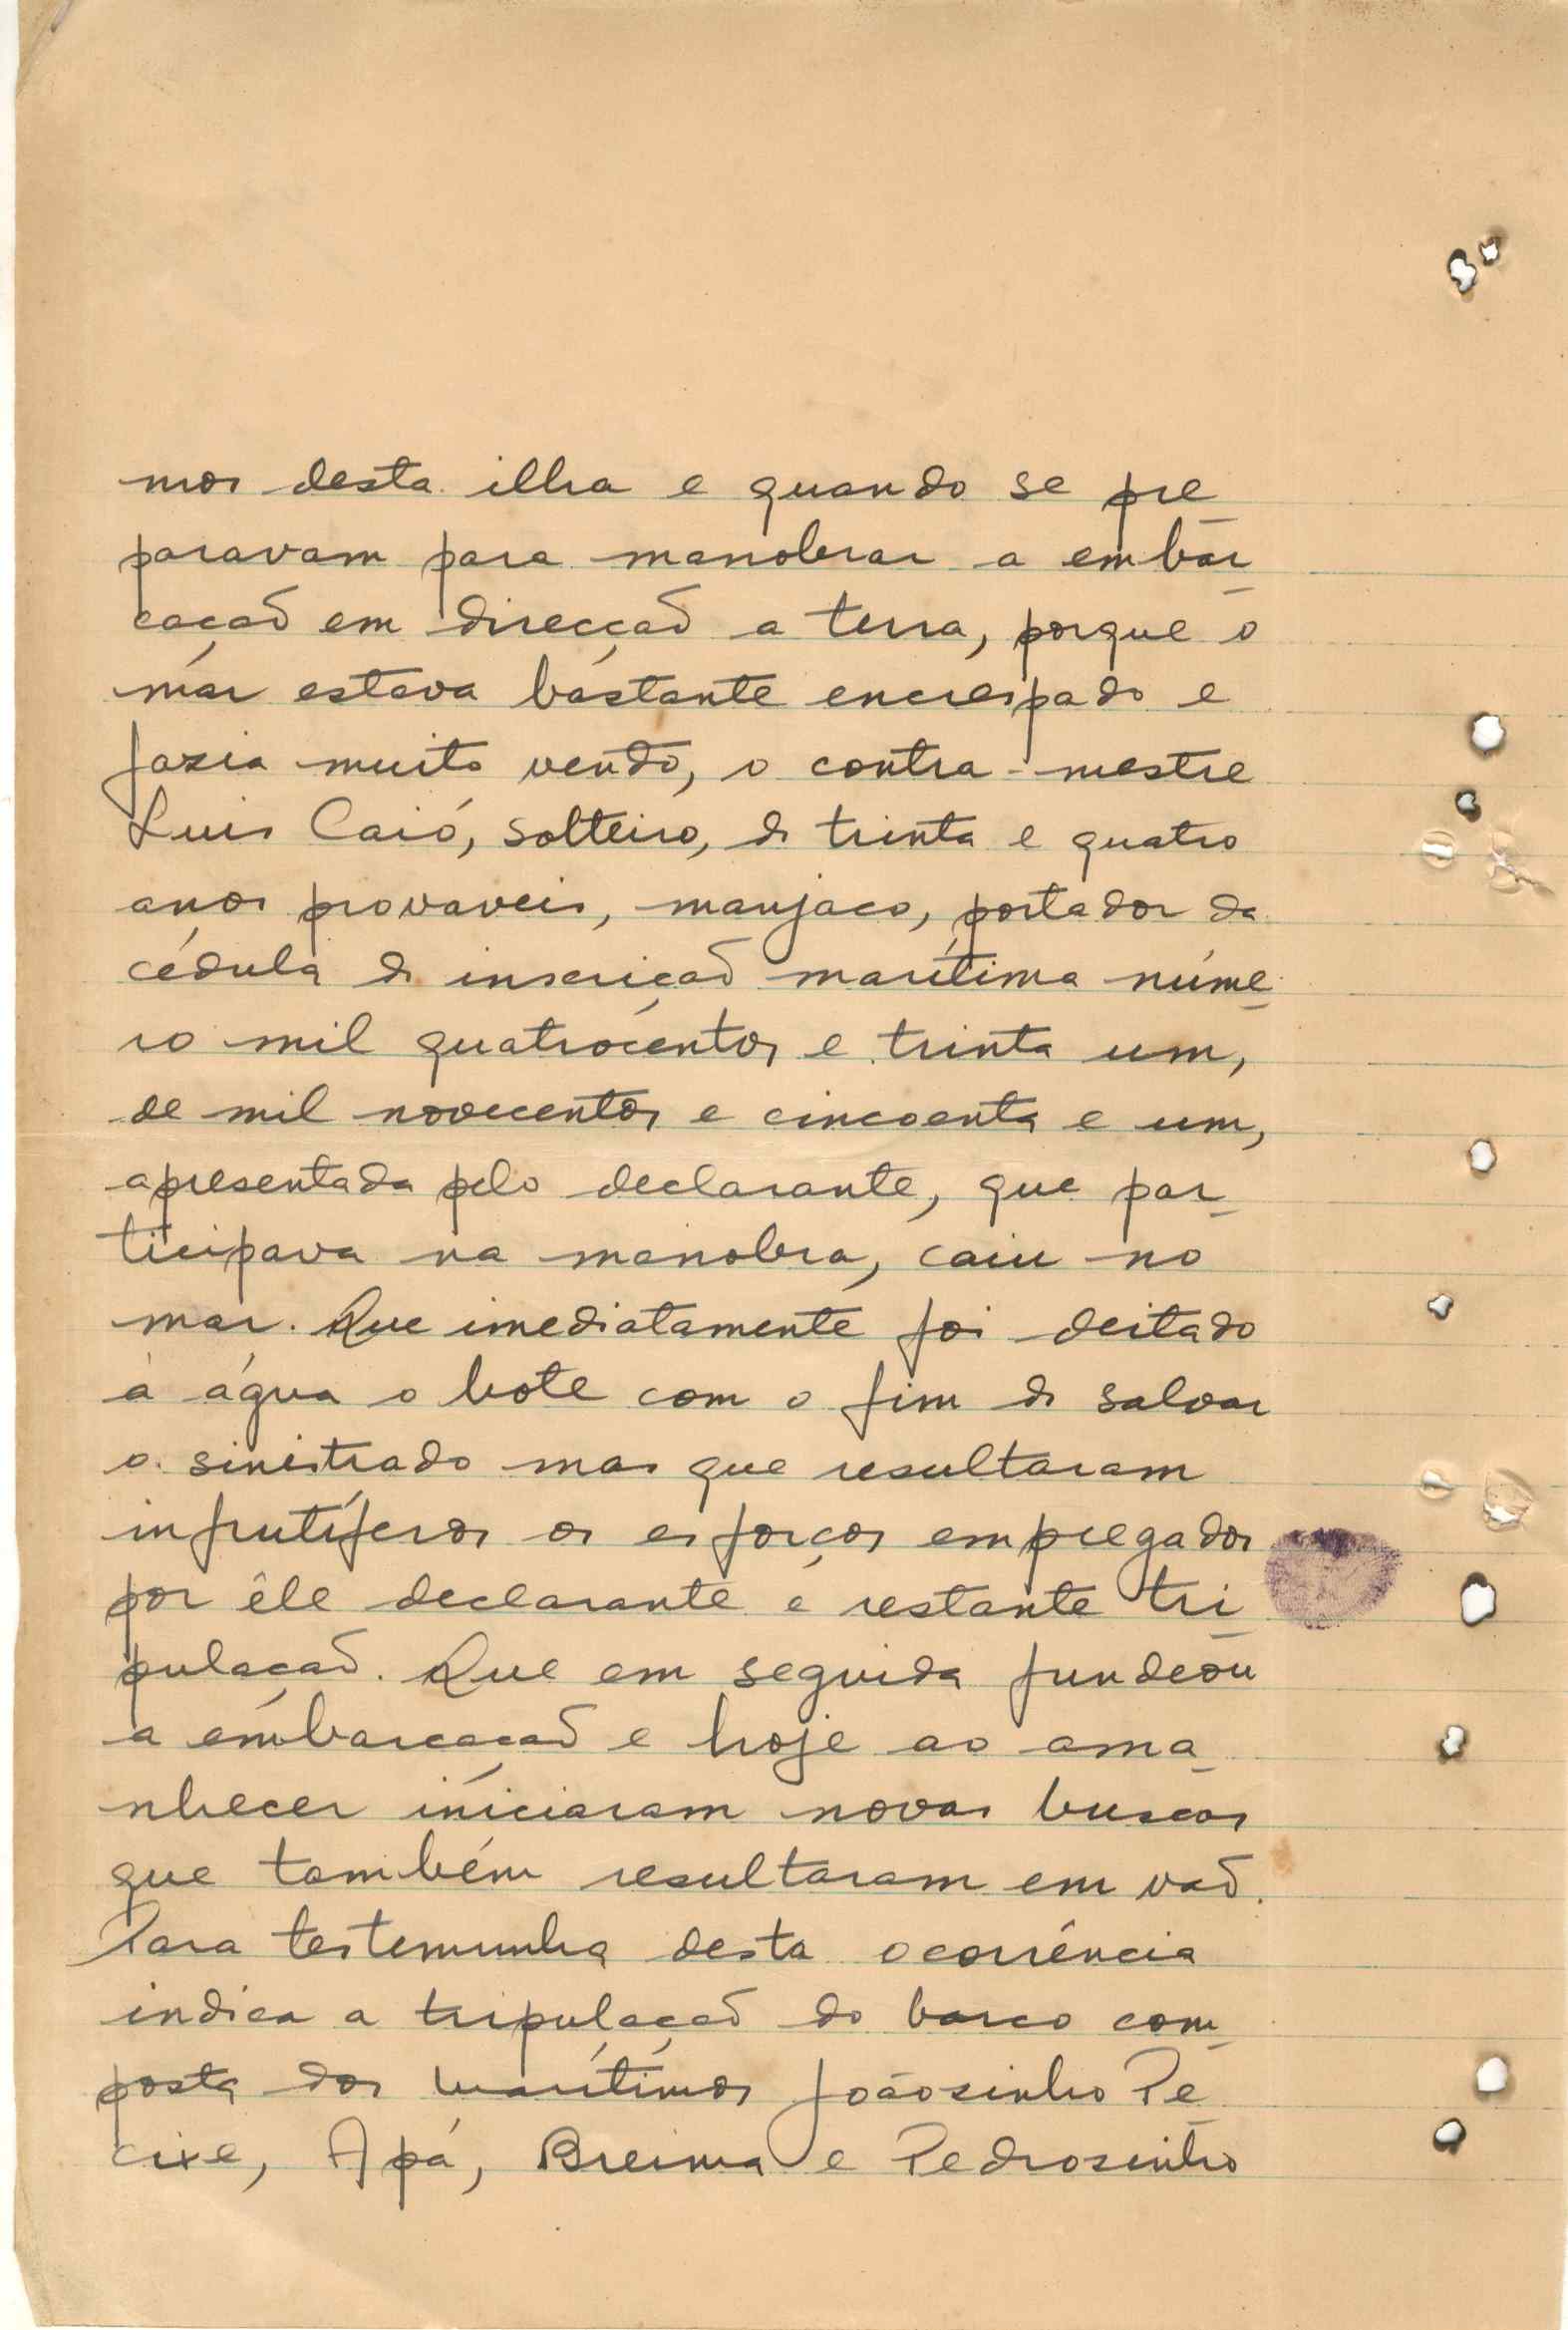 mos desta ilha e quando se pre
paravam para manobrar a embar
cação em direcção a terra, porque o
mar estava bastante encrespado e
fazia muito vendo, o contra-mestre
Luis Caió, solteiro, de trinta e quatro
anos provaveis, manjaco, portador da
cédula de inscrição marítima núme
ro mil quatrocentos e trinta um,
de mil novecentos e cincoenta e um,
apresentada pelo declarante, que par
ticipava na manobra, caiu no
mar. Que imediatamente foi deitado
à água o bote com o fim de salvar
o sinistrado mas que resultaram
infrutíferos os esforços empregados
por êle declarante e restante tri
pulação. Que em seguida fundeou
a embarcação e hoje ao ama
nhecer iniciaram novas buscas
que também resultaram em vão.
Para testemunha desta ocorrência
indica a tripulação do barco com
posta dos marítimos Joãosinho Pe
cixe, Apá, Breima e Pedrosinho